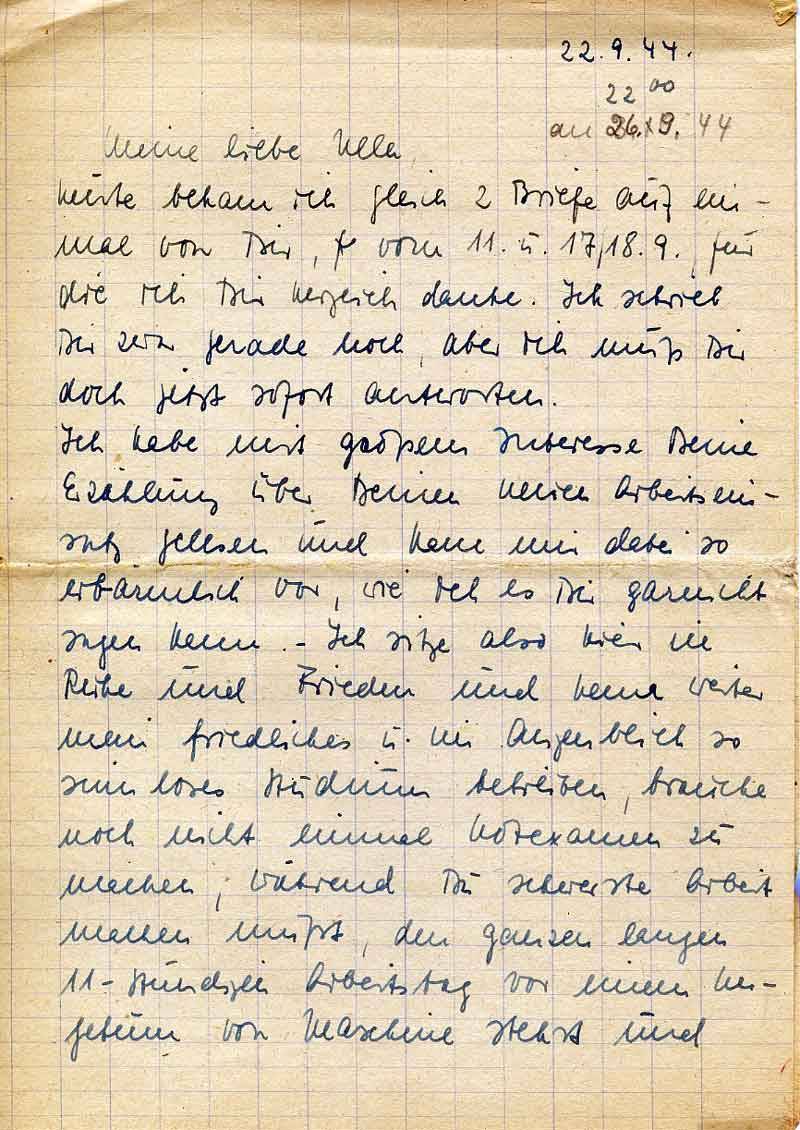 22.9.44.
22 00
an 26.9.44
Meine liebe Ulla,
heute bekam ich gleich 2 Briefe auf ein-
mal von Dir, vom 11. u. 17./18.9., für
die ich Dir herzlich danke. Ich schrieb
Dir zwar gerade noch, aber ich muß Dir
doch jetzt sofort antworten.
Ich habe mit großem Interesse Deine
Erzählung über Deinen neuen Arbeitsein-
satz gelesen und kam mir dabei so
erbärmlich vor, wie ich es Dir garnicht
sagen kann. - Ich sitze also hier in
Ruhe und Frieden und kann weiter
mein friedliches u. im Augenblick so
sinnloses Studium betreiben, brauche
noch nicht einmal Notexamen zu
machen, während Du schwerste Arbeit
machen mußt, den ganzen langen
11-stündigen Arbeitstag vor einem Un-
getüm von Maschine stehst und